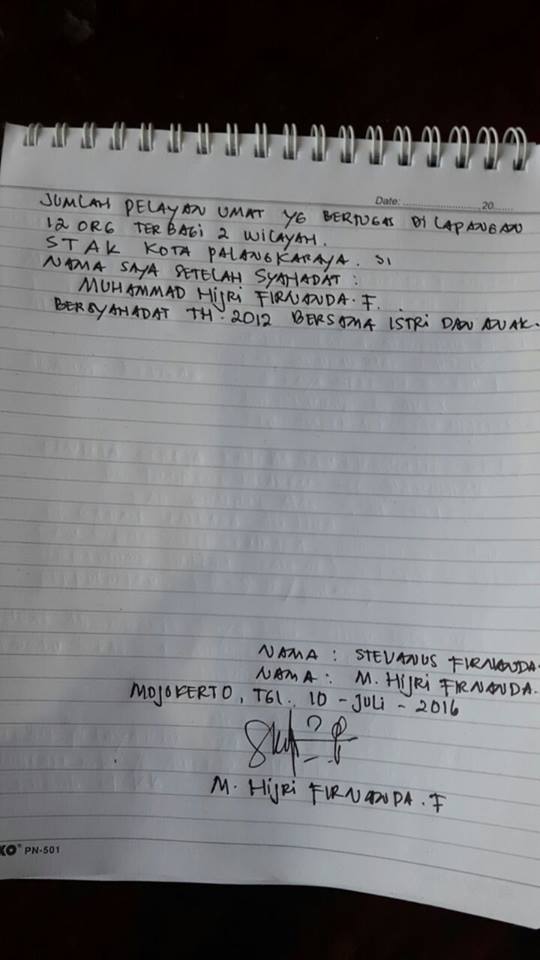 Date: ........................ 20......
JUMLAH PELAYAN UMAT YG BERTUGAS DI LAPANGAN
12 ORG TERBAGI 2 WILAYAH.
STAK KOTA PALANGKARAYA. S1
NAMA SAYA SETELAH SYAHADAT :
MUHAMMAD HIJRI FIRNANDA. F.
BERSYAHADAT TH. 2012 BERSAMA ISTRI DAN ANAK.
NAMA : STEVANUS FIRNANDA.
NAMA : M. HIJRI FIRNANDA.
MOJOKERTO, TGL. 10 - JULI - 2016
M. HIJRI FIRNANDA. F
KO PN-501